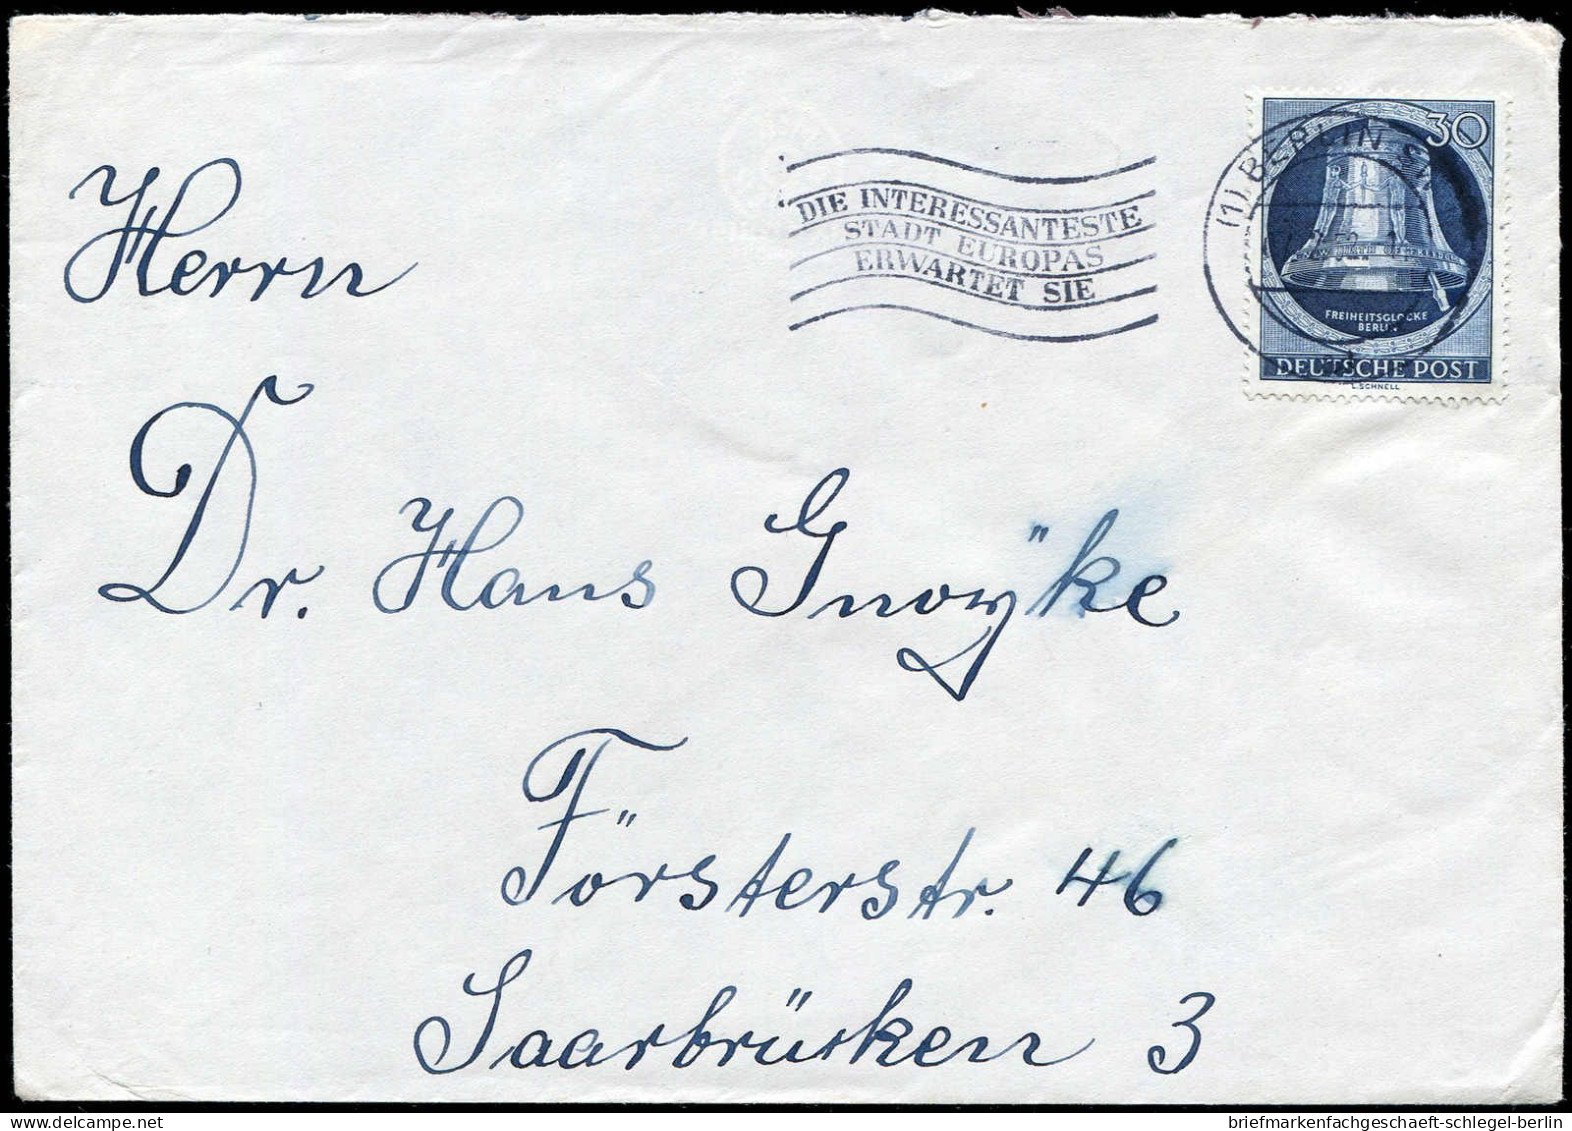 DIE INTERESSANTESTE
STADT EUROPAS
ERWARTET SIE
(1) BERLIN SW
30
FREIHEITSGLOCKE
BERLIN
DEUTSCHE POST
L.SCHNELL
Herrn
Dr. Hans Gnoÿke
Försterstr. 46
Saarbrücken 3
briefmarkenfachgeschaeft-schlegel-berlin